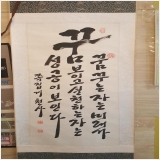 꿈
꿈꾸는자는미래가
보이고실천하는자는
성공이보인다